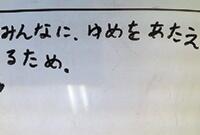 みんなに、ゆめをあたえ
るため。